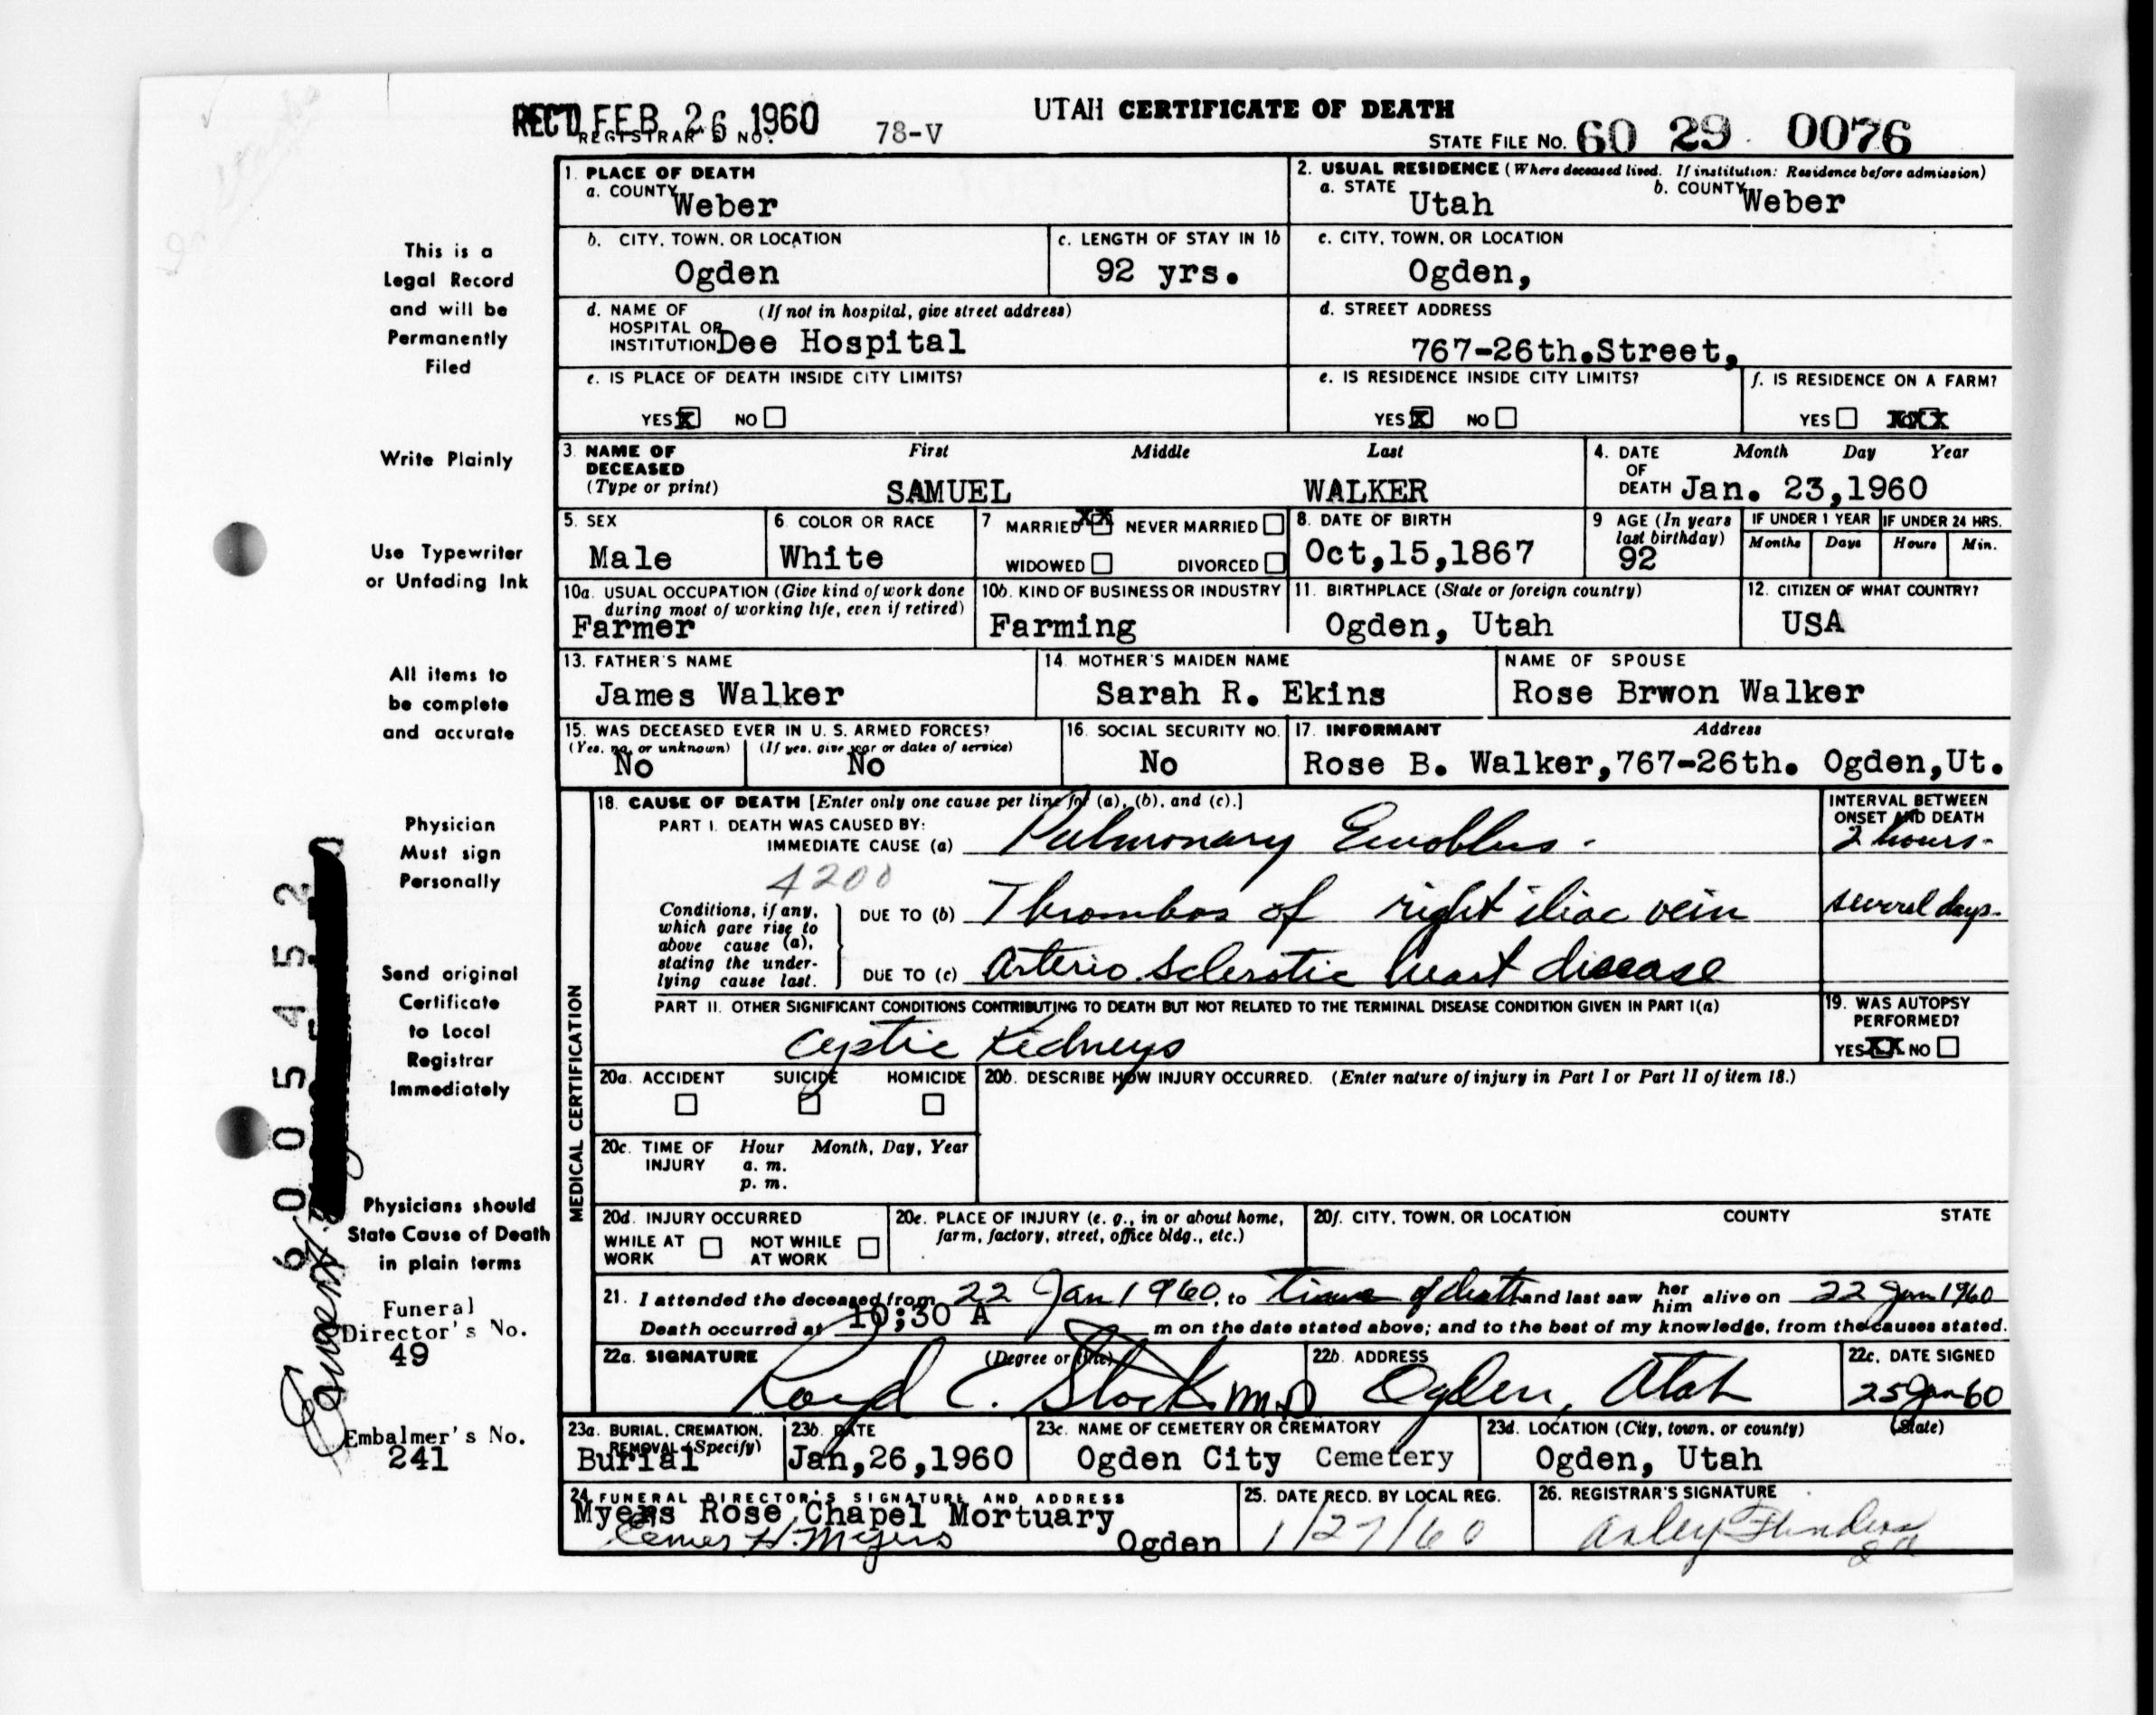 REC'D FEB 26 1960
REGISTRAR'S NO. 78-V
UTAH CERTIFICATE OF DEATH
STATE FILE NO. 60 29 0076
1. PLACE OF DEATH
a. COUNTY Weber
2. USUAL RESIDENCE (Where deceased lived. If institution: Residence before admission)
a. STATE Utah b. COUNTY Weber
b. CITY, TOWN, OR LOCATION Ogden
c. LENGTH OF STAY IN 1b 92 yrs.
c. CITY, TOWN, OR LOCATION Ogden,
d. NAME OF HOSPITAL OR INSTITUTION (If not in hospital, give street address) Dee Hospital
d. STREET ADDRESS 767-26th.Street,
e. IS PLACE OF DEATH INSIDE CITY LIMITS?
YES X NO
e. IS RESIDENCE INSIDE CITY LIMITS?
YES X NO
f. IS RESIDENCE ON A FARM?
YES XXX
3. NAME OF DECEASED (Type or print)
First Middle Last
SAMUEL WALKER
4. DATE OF DEATH Month Day Year
Jan. 23,1960
5. SEX Male
6. COLOR OR RACE White
7 MARRIED XX NEVER MARRIED
WIDOWED DIVORCED
8. DATE OF BIRTH Oct,15,1867
9 AGE (In years last birthday) 92
IF UNDER 1 YEAR Months Days
IF UNDER 24 HRS. Hours Min.
10a. USUAL OCCUPATION (Give kind of work done during most of working life, even if retired) Farmer
10b. KIND OF BUSINESS OR INDUSTRY Farming
11. BIRTHPLACE (State or foreign country) Ogden, Utah
12. CITIZEN OF WHAT COUNTRY? USA
13. FATHER'S NAME James Walker
14. MOTHER'S MAIDEN NAME Sarah R. Ekins
NAME OF SPOUSE Rose Brwon Walker
15. WAS DECEASED EVER IN U. S. ARMED FORCES?
(Yes, no, or unknown) No
(If yes, give war or dates of service) No
16. SOCIAL SECURITY NO. No
17. INFORMANT Address
Rose B. Walker,767-26th. Ogden,Ut.
MEDICAL CERTIFICATION
18. CAUSE OF DEATH [Enter only one cause per line for (a), (b), and (c).]
PART I. DEATH WAS CAUSED BY:
IMMEDIATE CAUSE (a) Pulmonary Embolus.
INTERVAL BETWEEN ONSET AND DEATH
2 hours-
4200
Conditions, if any, which gave rise to above cause (a), stating the underlying cause last.
DUE TO (b) Thrombos of right iliac vein
several days-
DUE TO (c) Arterio Sclerotic heart disease
PART II. OTHER SIGNIFICANT CONDITIONS CONTRIBUTING TO DEATH BUT NOT RELATED TO THE TERMINAL DISEASE CONDITION GIVEN IN PART I(a)
Cystic Kidneys
19. WAS AUTOPSY PERFORMED?
YES XX NO
20a. ACCIDENT SUICIDE HOMICIDE
20b. DESCRIBE HOW INJURY OCCURRED. (Enter nature of injury in Part I or Part II of item 18.)
20c. TIME OF INJURY Hour Month, Day, Year
a. m.
p. m.
20d. INJURY OCCURRED
WHILE AT WORK NOT WHILE AT WORK
20e. PLACE OF INJURY (e. g., in or about home, farm, factory, street, office bldg., etc.)
20f. CITY, TOWN, OR LOCATION COUNTY STATE
21. I attended the deceased from 22 Jan 1960, to time of death and last saw her him alive on 22 Jan 1960
Death occurred at 10;30 A m on the date stated above; and to the best of my knowledge, from the causes stated.
22a. SIGNATURE (Degree or title)
Loyd C. Stock M.D
22b. ADDRESS Ogden, Utah
22c. DATE SIGNED 25 Jan 60
23a. BURIAL, CREMATION, REMOVAL (Specify) Burial
23b. DATE Jan,26,1960
23c. NAME OF CEMETERY OR CREMATORY Ogden City Cemetery
23d. LOCATION (City, town, or county) (State) Ogden, Utah
24 FUNERAL DIRECTOR'S SIGNATURE AND ADDRESS
Myers Rose Chapel Mortuary
H. Myers
Ogden
25. DATE RECD. BY LOCAL REG. 1/27/60
26. REGISTRAR'S SIGNATURE
This is a
Legal Record
and will be
Permanently
Filed
Write Plainly
Use Typewriter
or Unfading Ink
All items to
be complete
and accurate
Physician
Must sign
Personally
Send original
Certificate
to Local
Registrar
Immediately
Physicians should
State Cause of Death
in plain terms
Funeral
Director's No.
49
Embalmer's No.
241
60 05452